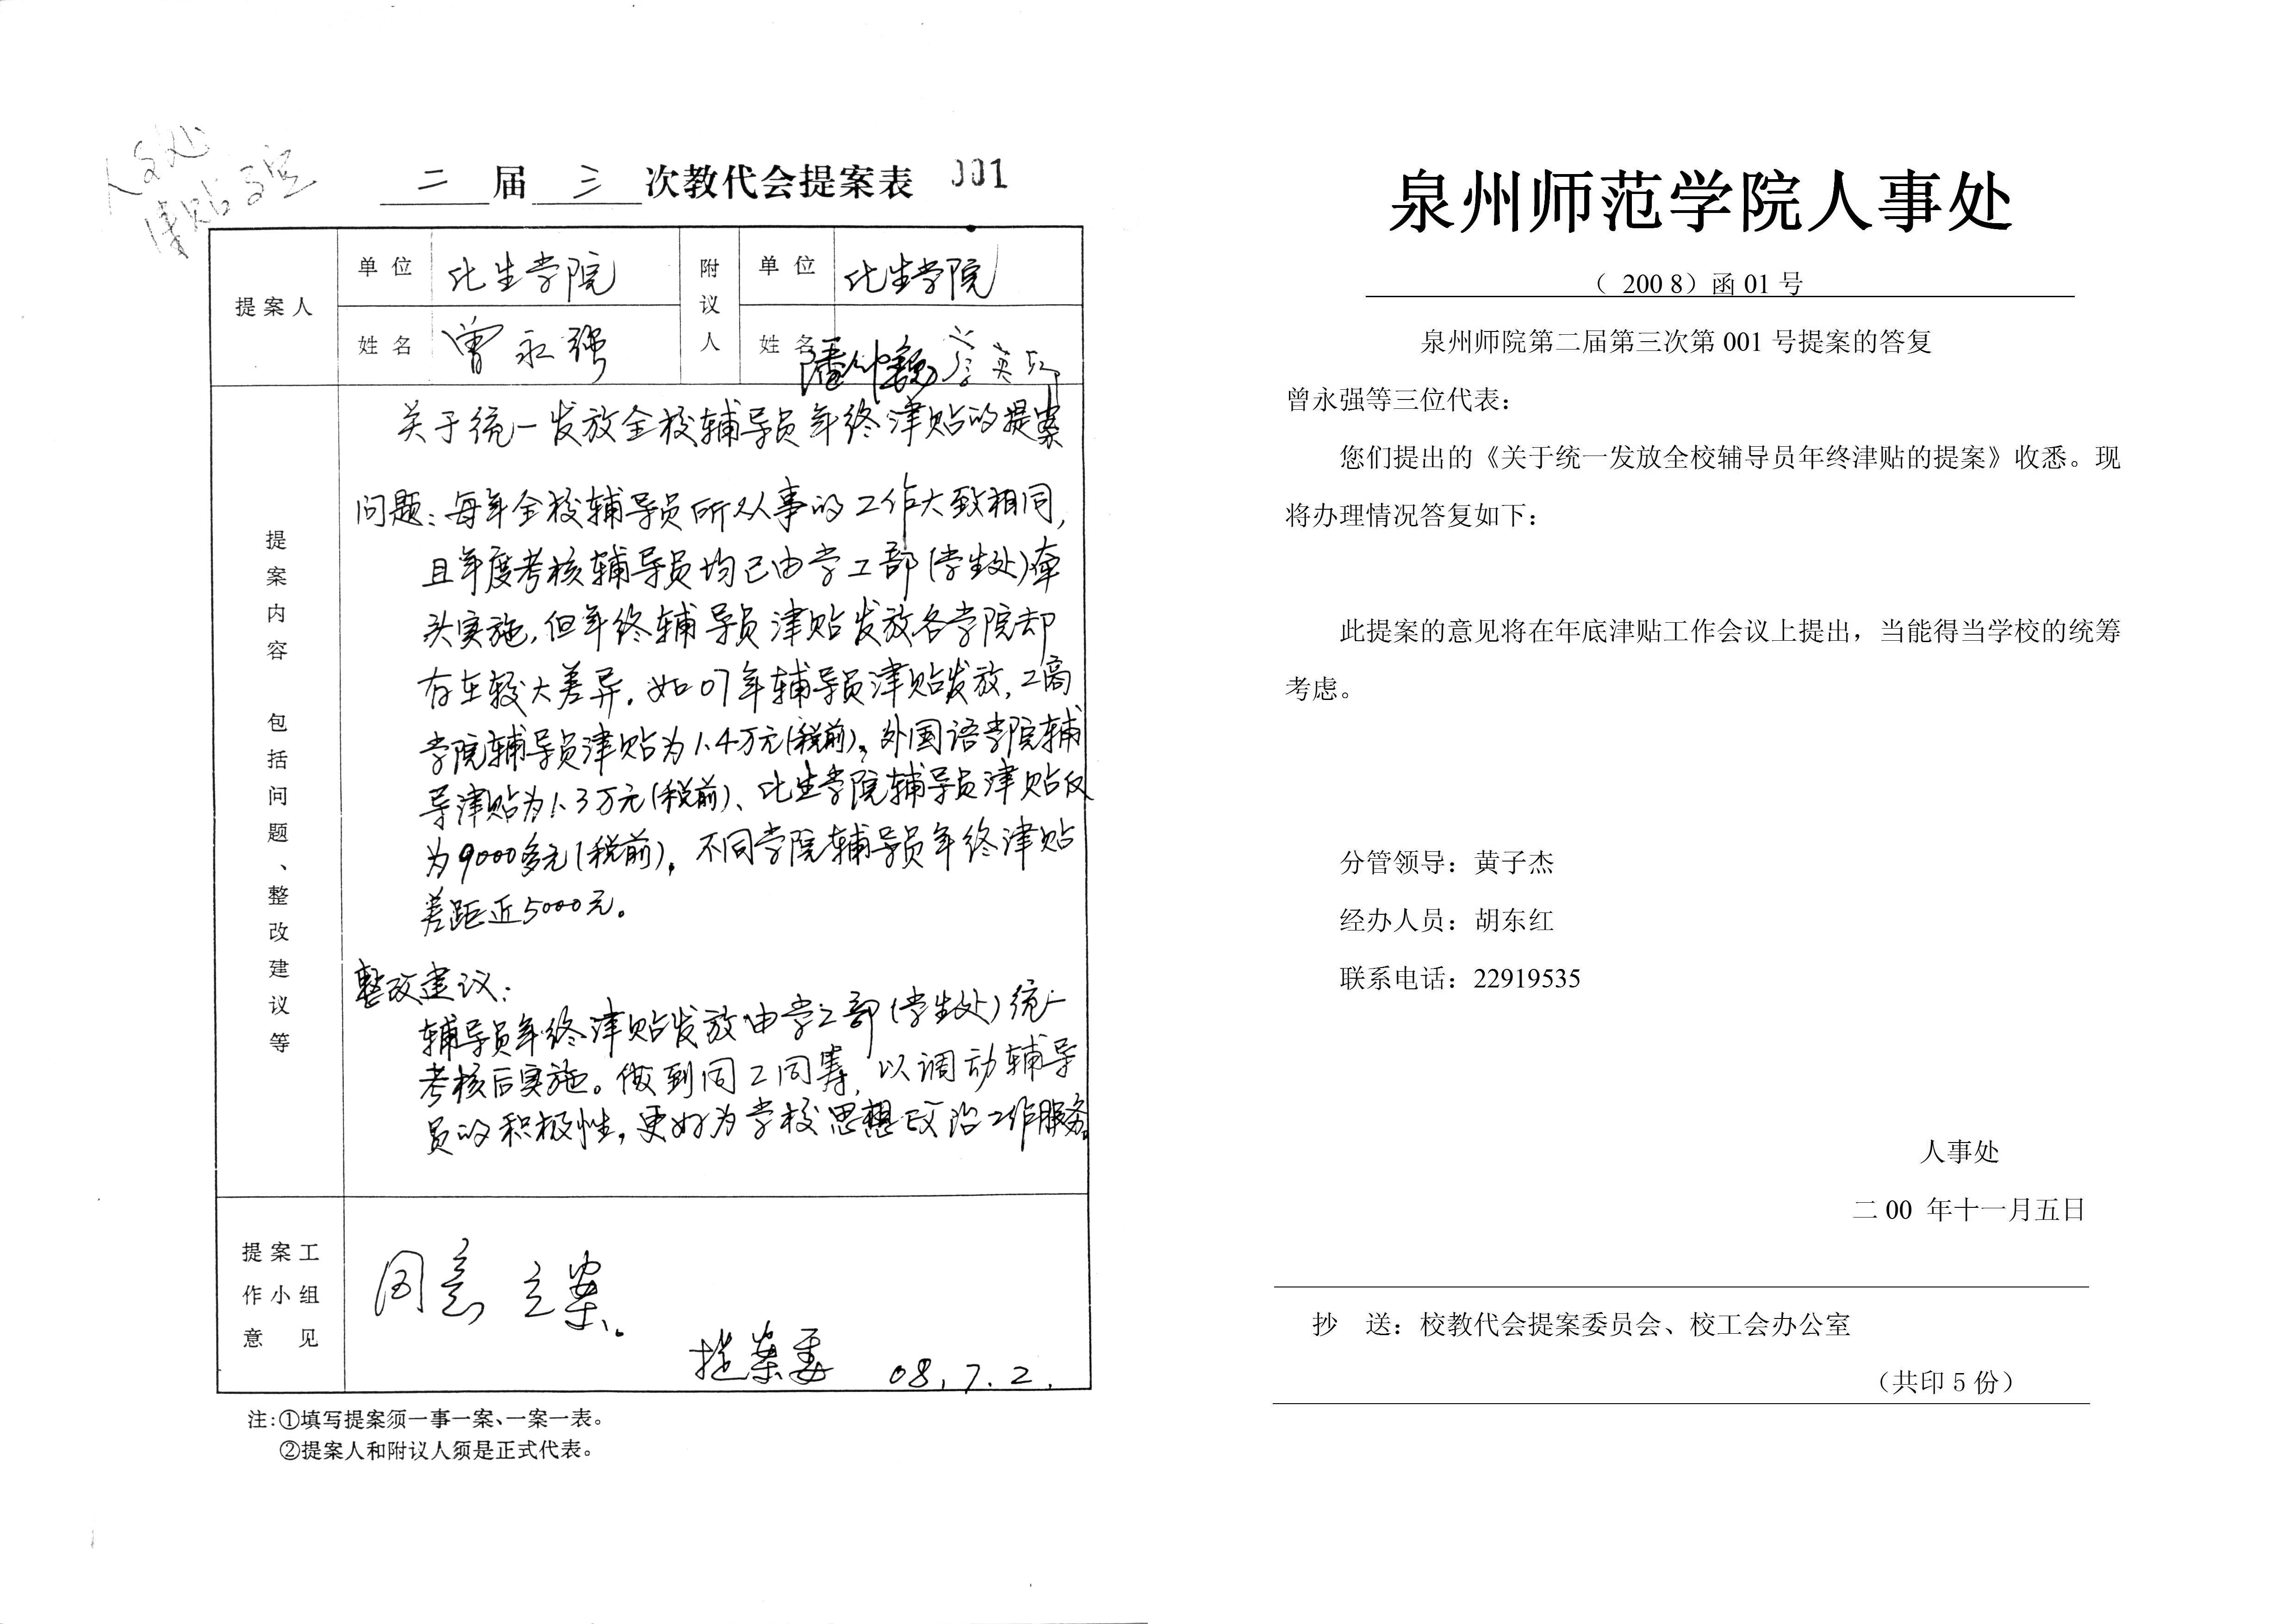 人事处
津贴
二届三次教代会提案表 001
提案人
单位 化生学院
姓名 曾永强
附议人
单位 化生学院
姓名
提案内容 包括问题、整改建议等
关于统一发放全校辅导员年终津贴的提案
问题：每年全校辅导员所从事的工作大致相同，
且年度考核辅导员均已由学工部(学生处)牵
头实施，但年终辅导员津贴发放各学院却
存在较大差异。如07年辅导员津贴发放，工商
学院辅导员津贴为1.4万元(税前)、外国语学院辅
导津贴为1.3万元(税前)、化生学院辅导员津贴仅
为9000多元(税前)。不同学院辅导员年终津贴
差距近5000元。
整改建议：
辅导员年终津贴发放由学工部(学生处)统一
考核后实施。做到同工同筹，以调动辅导
员的积极性，更好为学校思想政治工作服务。
提案工
作小组
意 见
同意立案。
提案委 08.7.2.
注:①填写提案须一事一案、一案一表。
②提案人和附议人须是正式代表。
泉州师范学院人事处
（ 200 8）函 01 号
泉州师院第二届第三次第 001 号提案的答复
曾永强等三位代表：
您们提出的《关于统一发放全校辅导员年终津贴的提案》收悉。现
将办理情况答复如下：
此提案的意见将在年底津贴工作会议上提出，当能得当学校的统筹
考虑。
分管领导：黄子杰
经办人员：胡东红
联系电话：22919535
人事处
二00 年十一月五日
抄 送：校教代会提案委员会、校工会办公室
（共印 5 份）